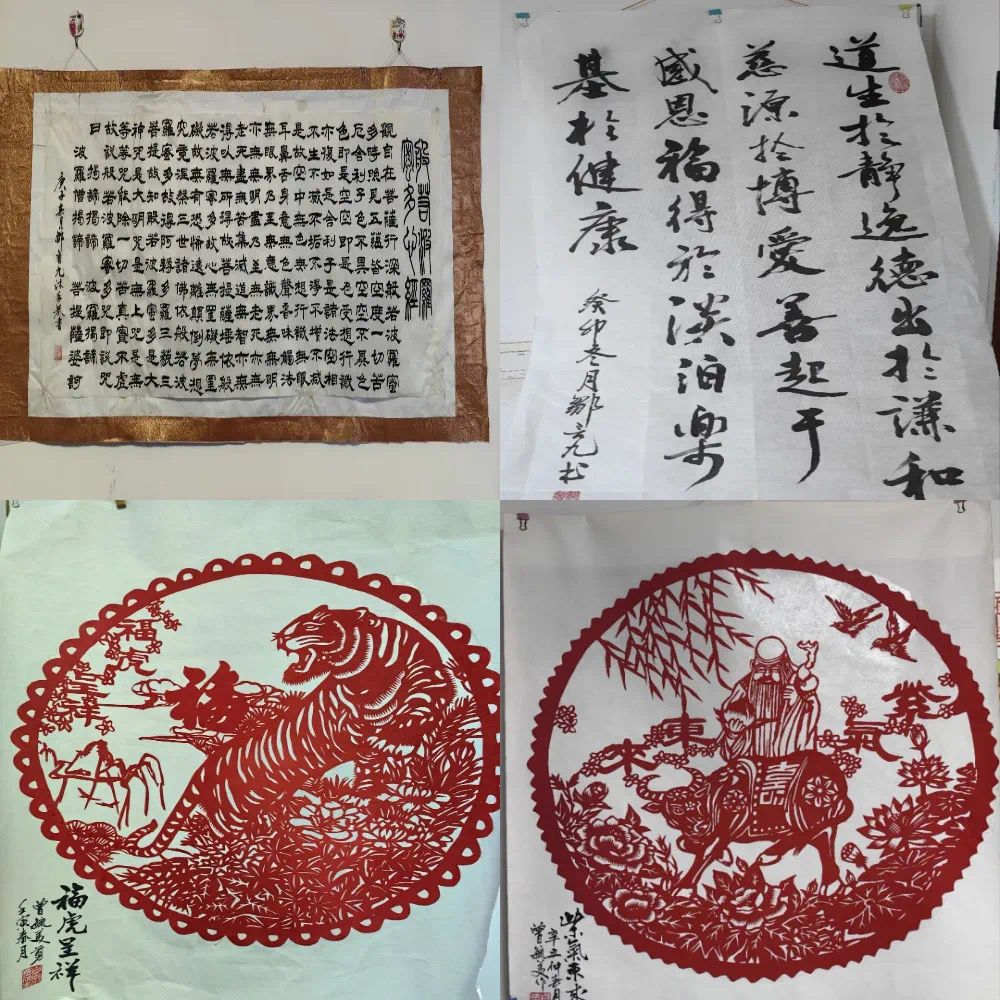 般若波羅
密多心經
觀自在菩薩行深般若波羅蜜
多時照見五蘊皆空度一切苦
厄舍利子色不異空空不異色
色即是空空即是色受想行識
亦復如是舍利子是諸法空相
不生不滅不垢不淨不增不減
是故空中無色無受想行識無眼
耳鼻舌身意無色聲香味觸法
無眼界乃至無意識界無無明
亦無無明盡乃至無老死亦無
老死盡無苦集滅道無智亦無
得以無所得故菩提薩埵依般
若波羅蜜多故心無罣礙無罣
礙故無有恐怖遠離顛倒夢想
究竟涅槃三世諸佛依般若波
羅蜜多故得阿耨多羅三藐三
菩提故知般若波羅蜜多是大
神咒是大明咒是無上咒是無
等等咒能除一切苦真實不虛
故說般若波羅蜜多咒即說咒
曰揭諦揭諦波羅揭諦
波羅僧揭諦菩提薩婆訶
庚子 九沐手敬書
道生於静逸德出於謙和
慈源於博愛善起于
感恩福得於淡泊樂
基於健康
癸卯冬月鄒立九书
福虎呈祥
福
福虎呈祥
壬寅春月
曾毓美剪
紫氣東来
紫氣東来
辛丑仲 月
曾毓美作